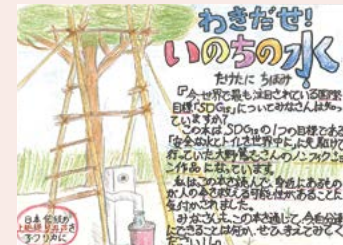 わきだせ!
いのちの水
たけたに ちほみ
『今、世界で最も注目されている国際
目標「SDGs」についてみなさんは知っ
ていますか?
この本は、SDGsの1つの目標である
「安全な水とトイレを世界中に」に先駆けて
行っていた大野篤志さんのノンフィクショ
ン作品になっています。
私は、この本を読んで、身近にあるもの
が人の命を変える可能性があることに
気付かされました。
みなさんも、この本を通して、今自分達
にできることは何か、ぜひ考えてみてく
ださい!』
日本伝統の
上総掘り井戸を
アフリカに